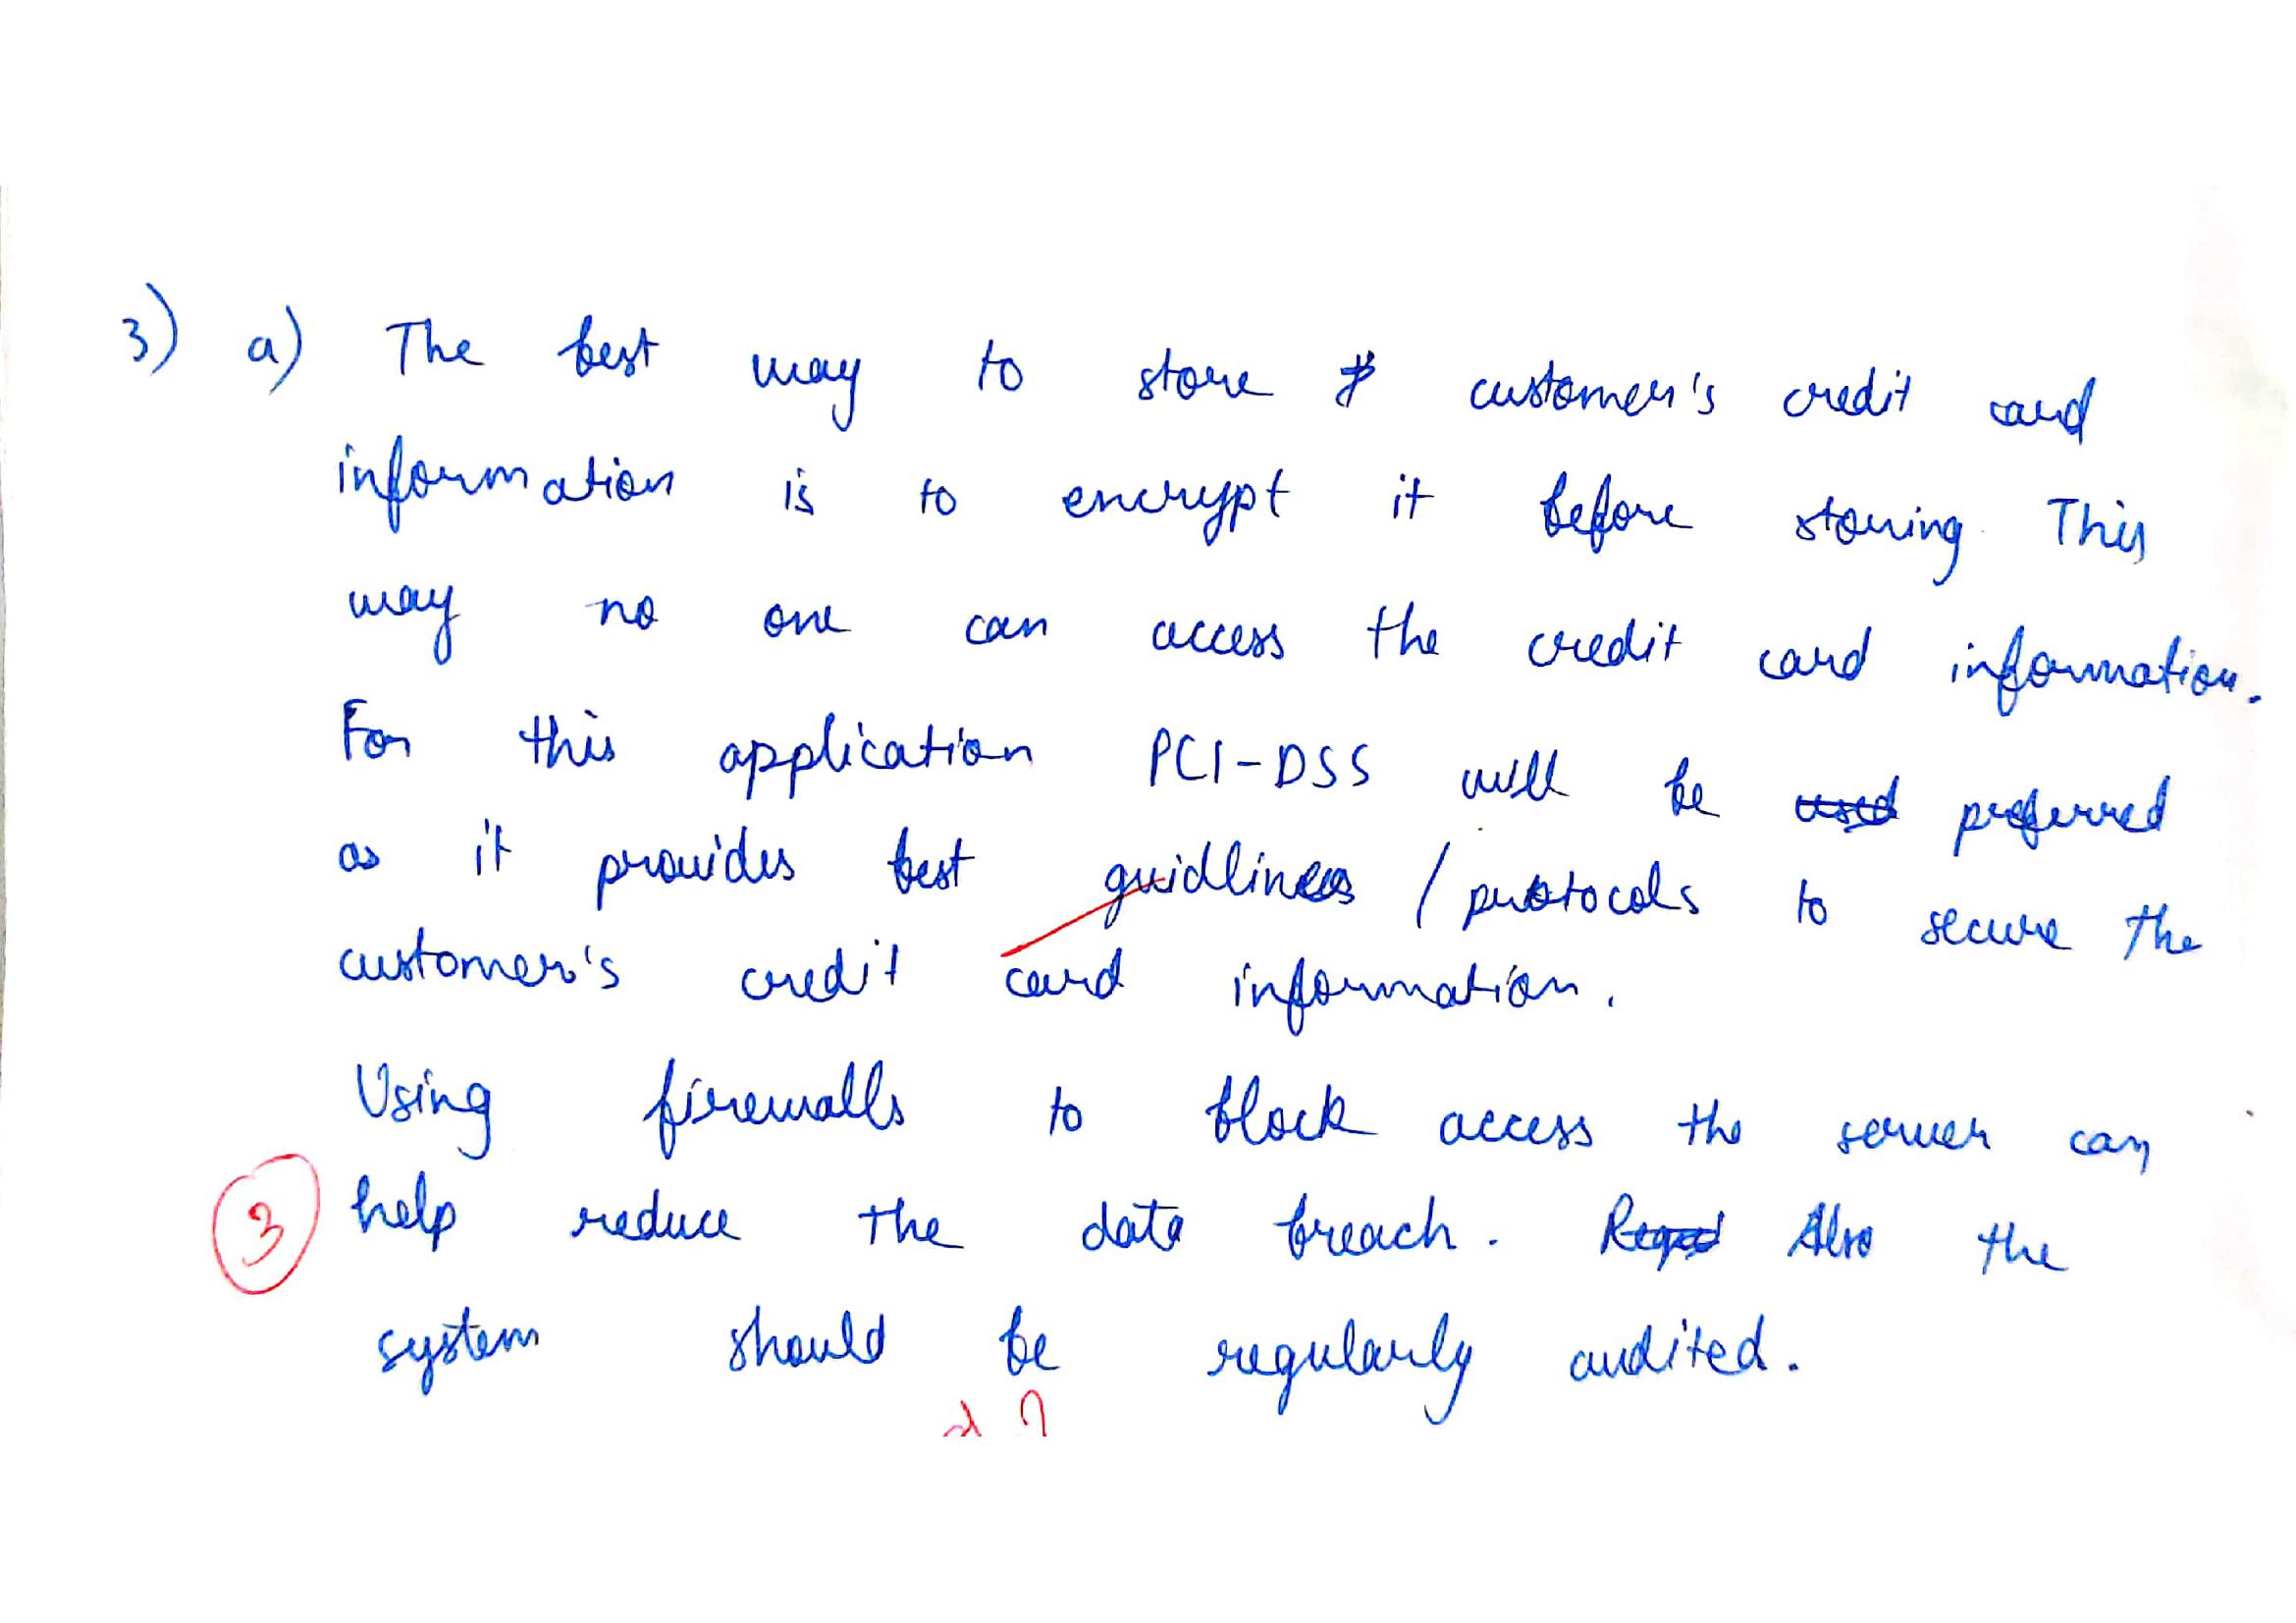 3) a) The best way to store customer's credit card
information is to encrypt it before storing. This
way no one can access the credit card information.
For this application PCI-DSS will be used preferred
as it provides best guidlines / protocols to secure the
customer's credit card information.
Using firewalls to block access the server can
3 help reduce the data breach. Also the
system should be regularly audited.